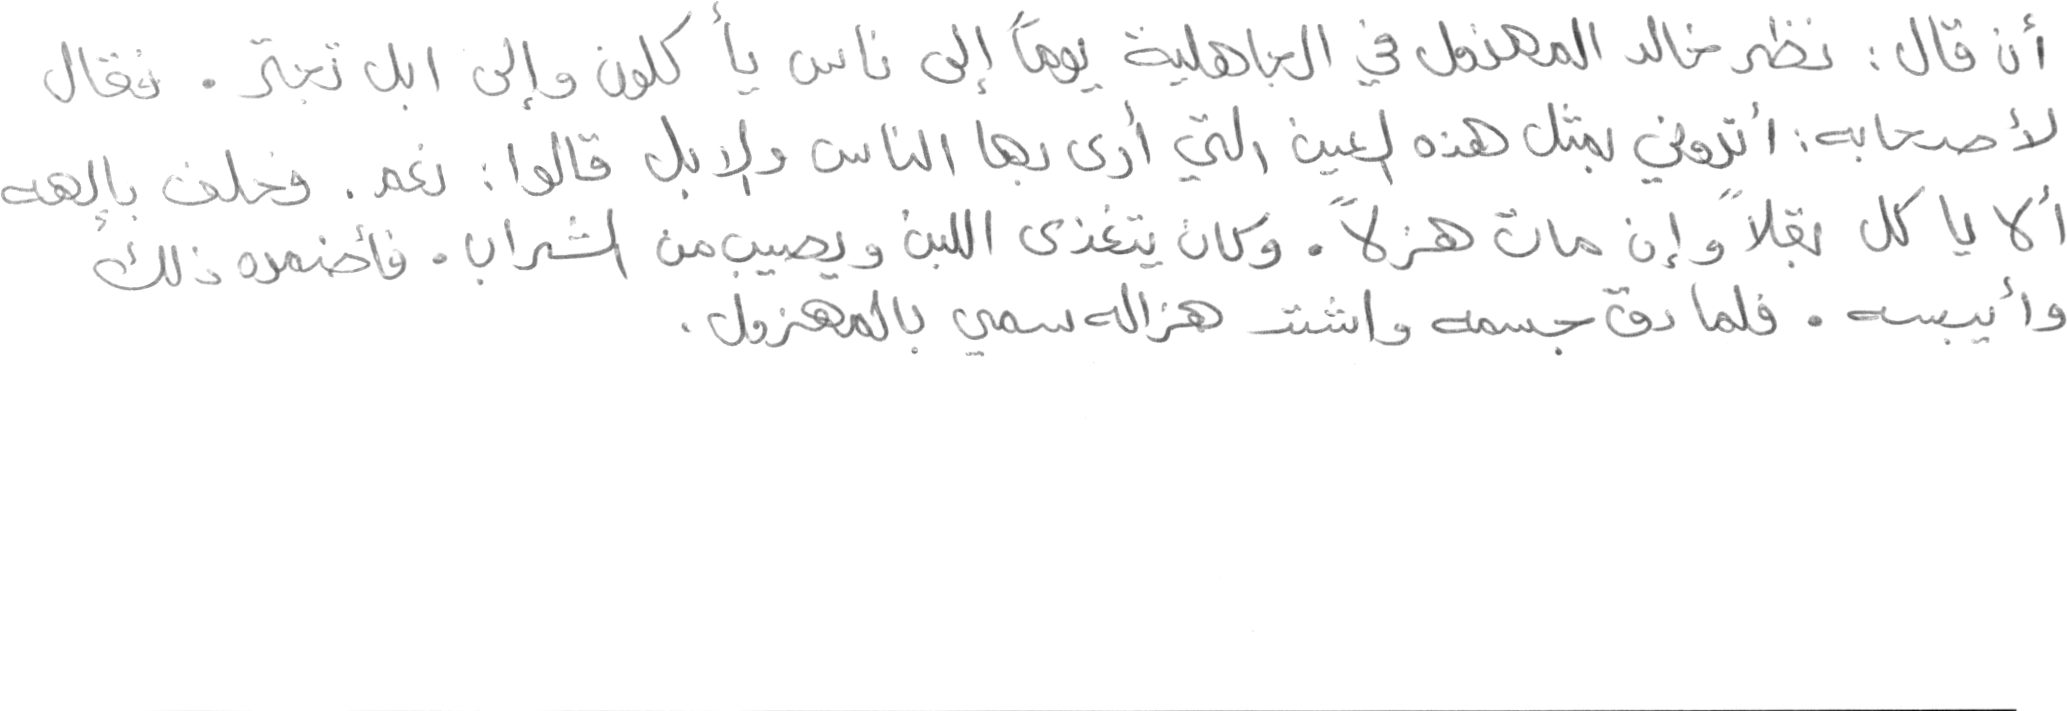 أن قال : نظر خالد المهزول في الجاهلية يوماً إلى ناس يأكلون وإلى ابل تجتر . فقال
لأصحابه : أتروني بمثل هذه العين التي أرى بها الناس والإبل قالوا : نعم . فحلف بإلهه
ألا يأكل بقلاً وإن مات هزلاً . وكان يتغذى اللبن ويصيب من الشراب . فأضمره ذلك
وأيبسه . فلما دق جسمه واشتد هزاله سمي بالمهزول .